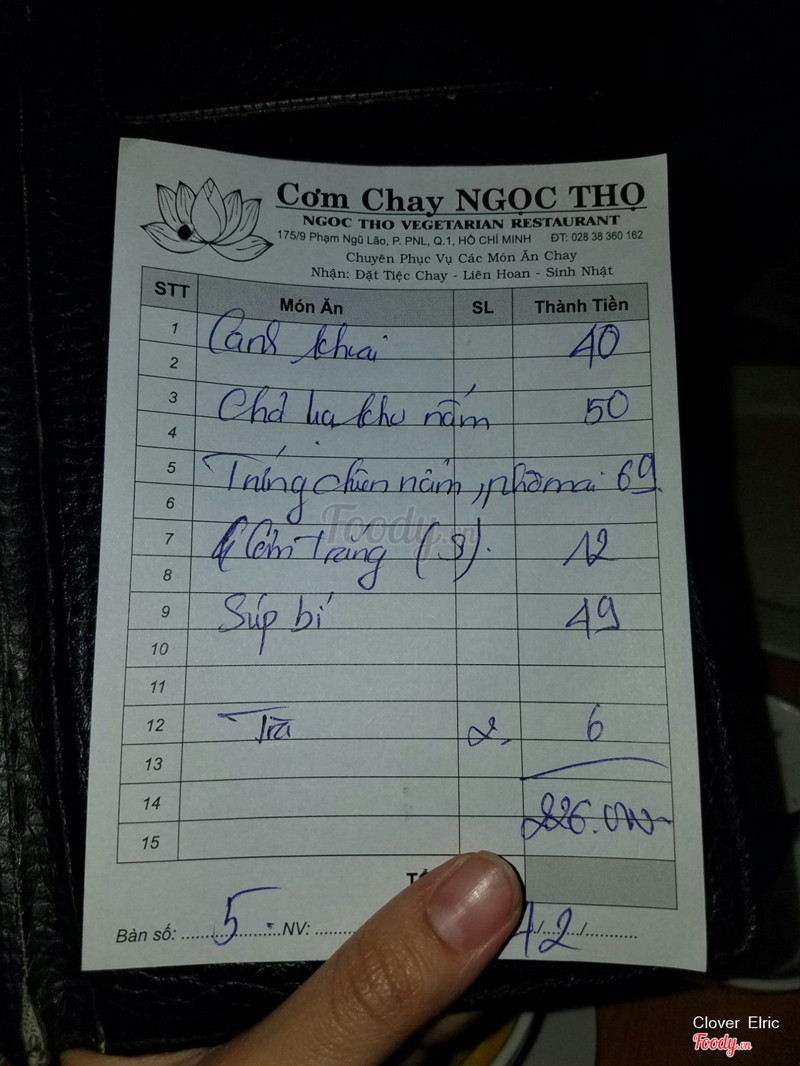 Cơm Chay NGỌC THỌ
NGOC THO VEGETARIAN RESTAURANT
175/9 Phạm Ngũ Lão, P. PNL, Q.1, HỒ CHÍ MINH ĐT: 028 38 360 162
Chuyên Phục Vụ Các Món Ăn Chay
Nhận: Đặt Tiệc Chay - Liên Hoan - Sinh Nhật
STT Món Ăn SL Thành Tiền
1 Canh khoai 40
2
3 Chả lụa kho nấm 50
4
5 Trứng chiên nấm, phômai 69
6
Foody.vn
7 Cơm Trắng (3). 12
8
9 Súp bí 49
10
11
12 Trà 2 6
13
14 226.000
15
Bàn số: 5 NV:
12
Clover Elric
Foody.vn